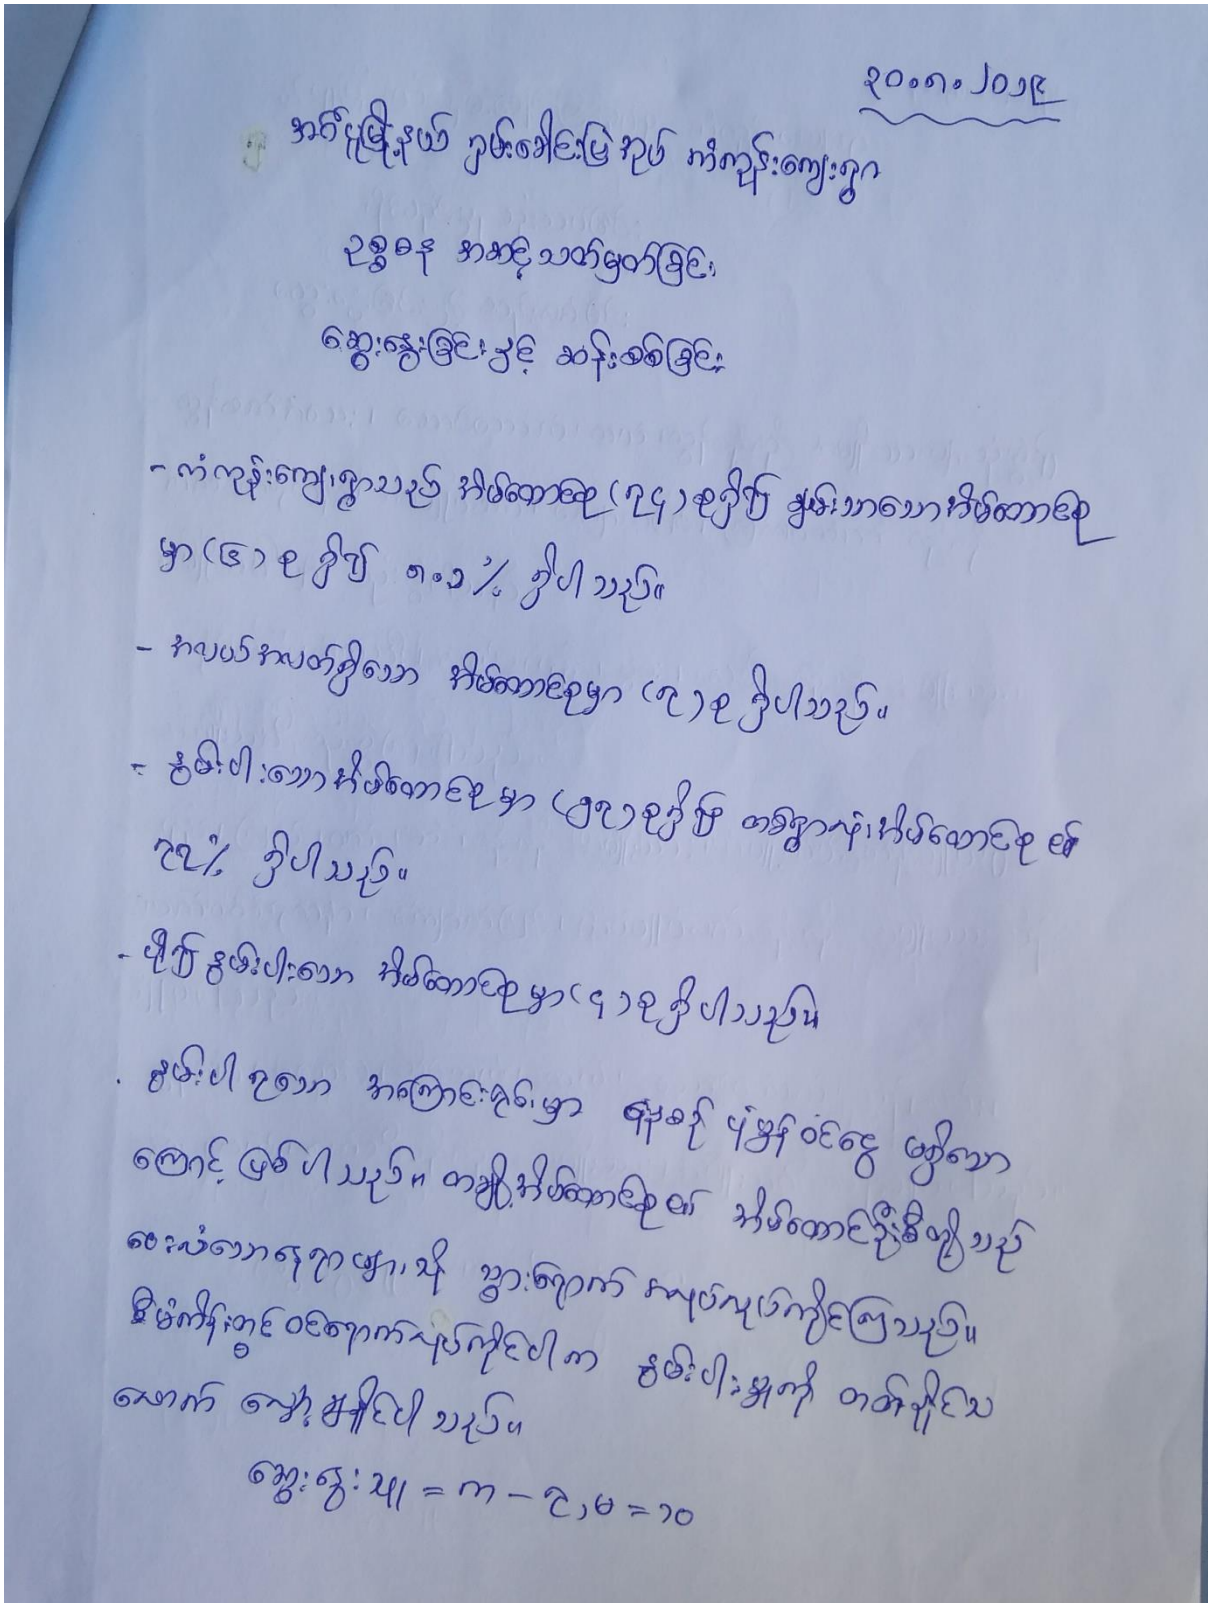 ၃၀.၈.၂၀၁၉
အင်္ဂပူမြို့နယ် ရှမ်းခေါင်းမြဲအုပ် ကံကုန်းကျေးရွာ
ဥစ္စဓန အဆင့်သတ်မှတ်ခြင်း
ဆွေးနွေးခြင်းနှင့် ဆန်းစစ်ခြင်း
- ကံကုန်းကျေးရွာသည် အိမ်ထောင်စု (၇၄) စုရှိပြီး ချမ်းသာသောအိမ်ထောင်စု
မှာ (၆) စု ရှိပြီး ၈.၁ % ရှိပါသည်။
- အလယ်အလတ်ရှိသော အိမ်ထောင်စုမှာ (၇) စု ရှိပါသည်။
- နွမ်းပါးသောအိမ်ထောင်စုမှာ (၅၇) စုရှိပြီး တစ်ရွာလုံးအိမ်ထောင်စု၏
၇၇% ရှိပါသည်။
- ပို၍နွမ်းပါးသော အိမ်ထောင်စုမှာ (၄) စုရှိပါသည်။
. နွမ်းပါးရသော အကြောင်းရင်းမှာ နေ့စဉ် ပုံမှန်ဝင်ငွေ မရှိသော
ကြောင့် ဖြစ်ပါသည်။ တချို့အိမ်ထောင်စု၏ အိမ်ထောင်ဦးစီးတို့သည်
ဝေးလံသောနေရာများသို့ သွားရောက် အလုပ်လုပ်ကိုင်ကြသည်။
စီမံကိန်းတွင် ဝင်ရောက်လုပ်ကိုင်ပါက နွမ်းပါးမှုကို တတ်နိုင်သ
လောက် လျှော့ချနိုင်ပါသည်။
ဆွေးနွေးသူ = ကျ - ၃, မ = ၁၀